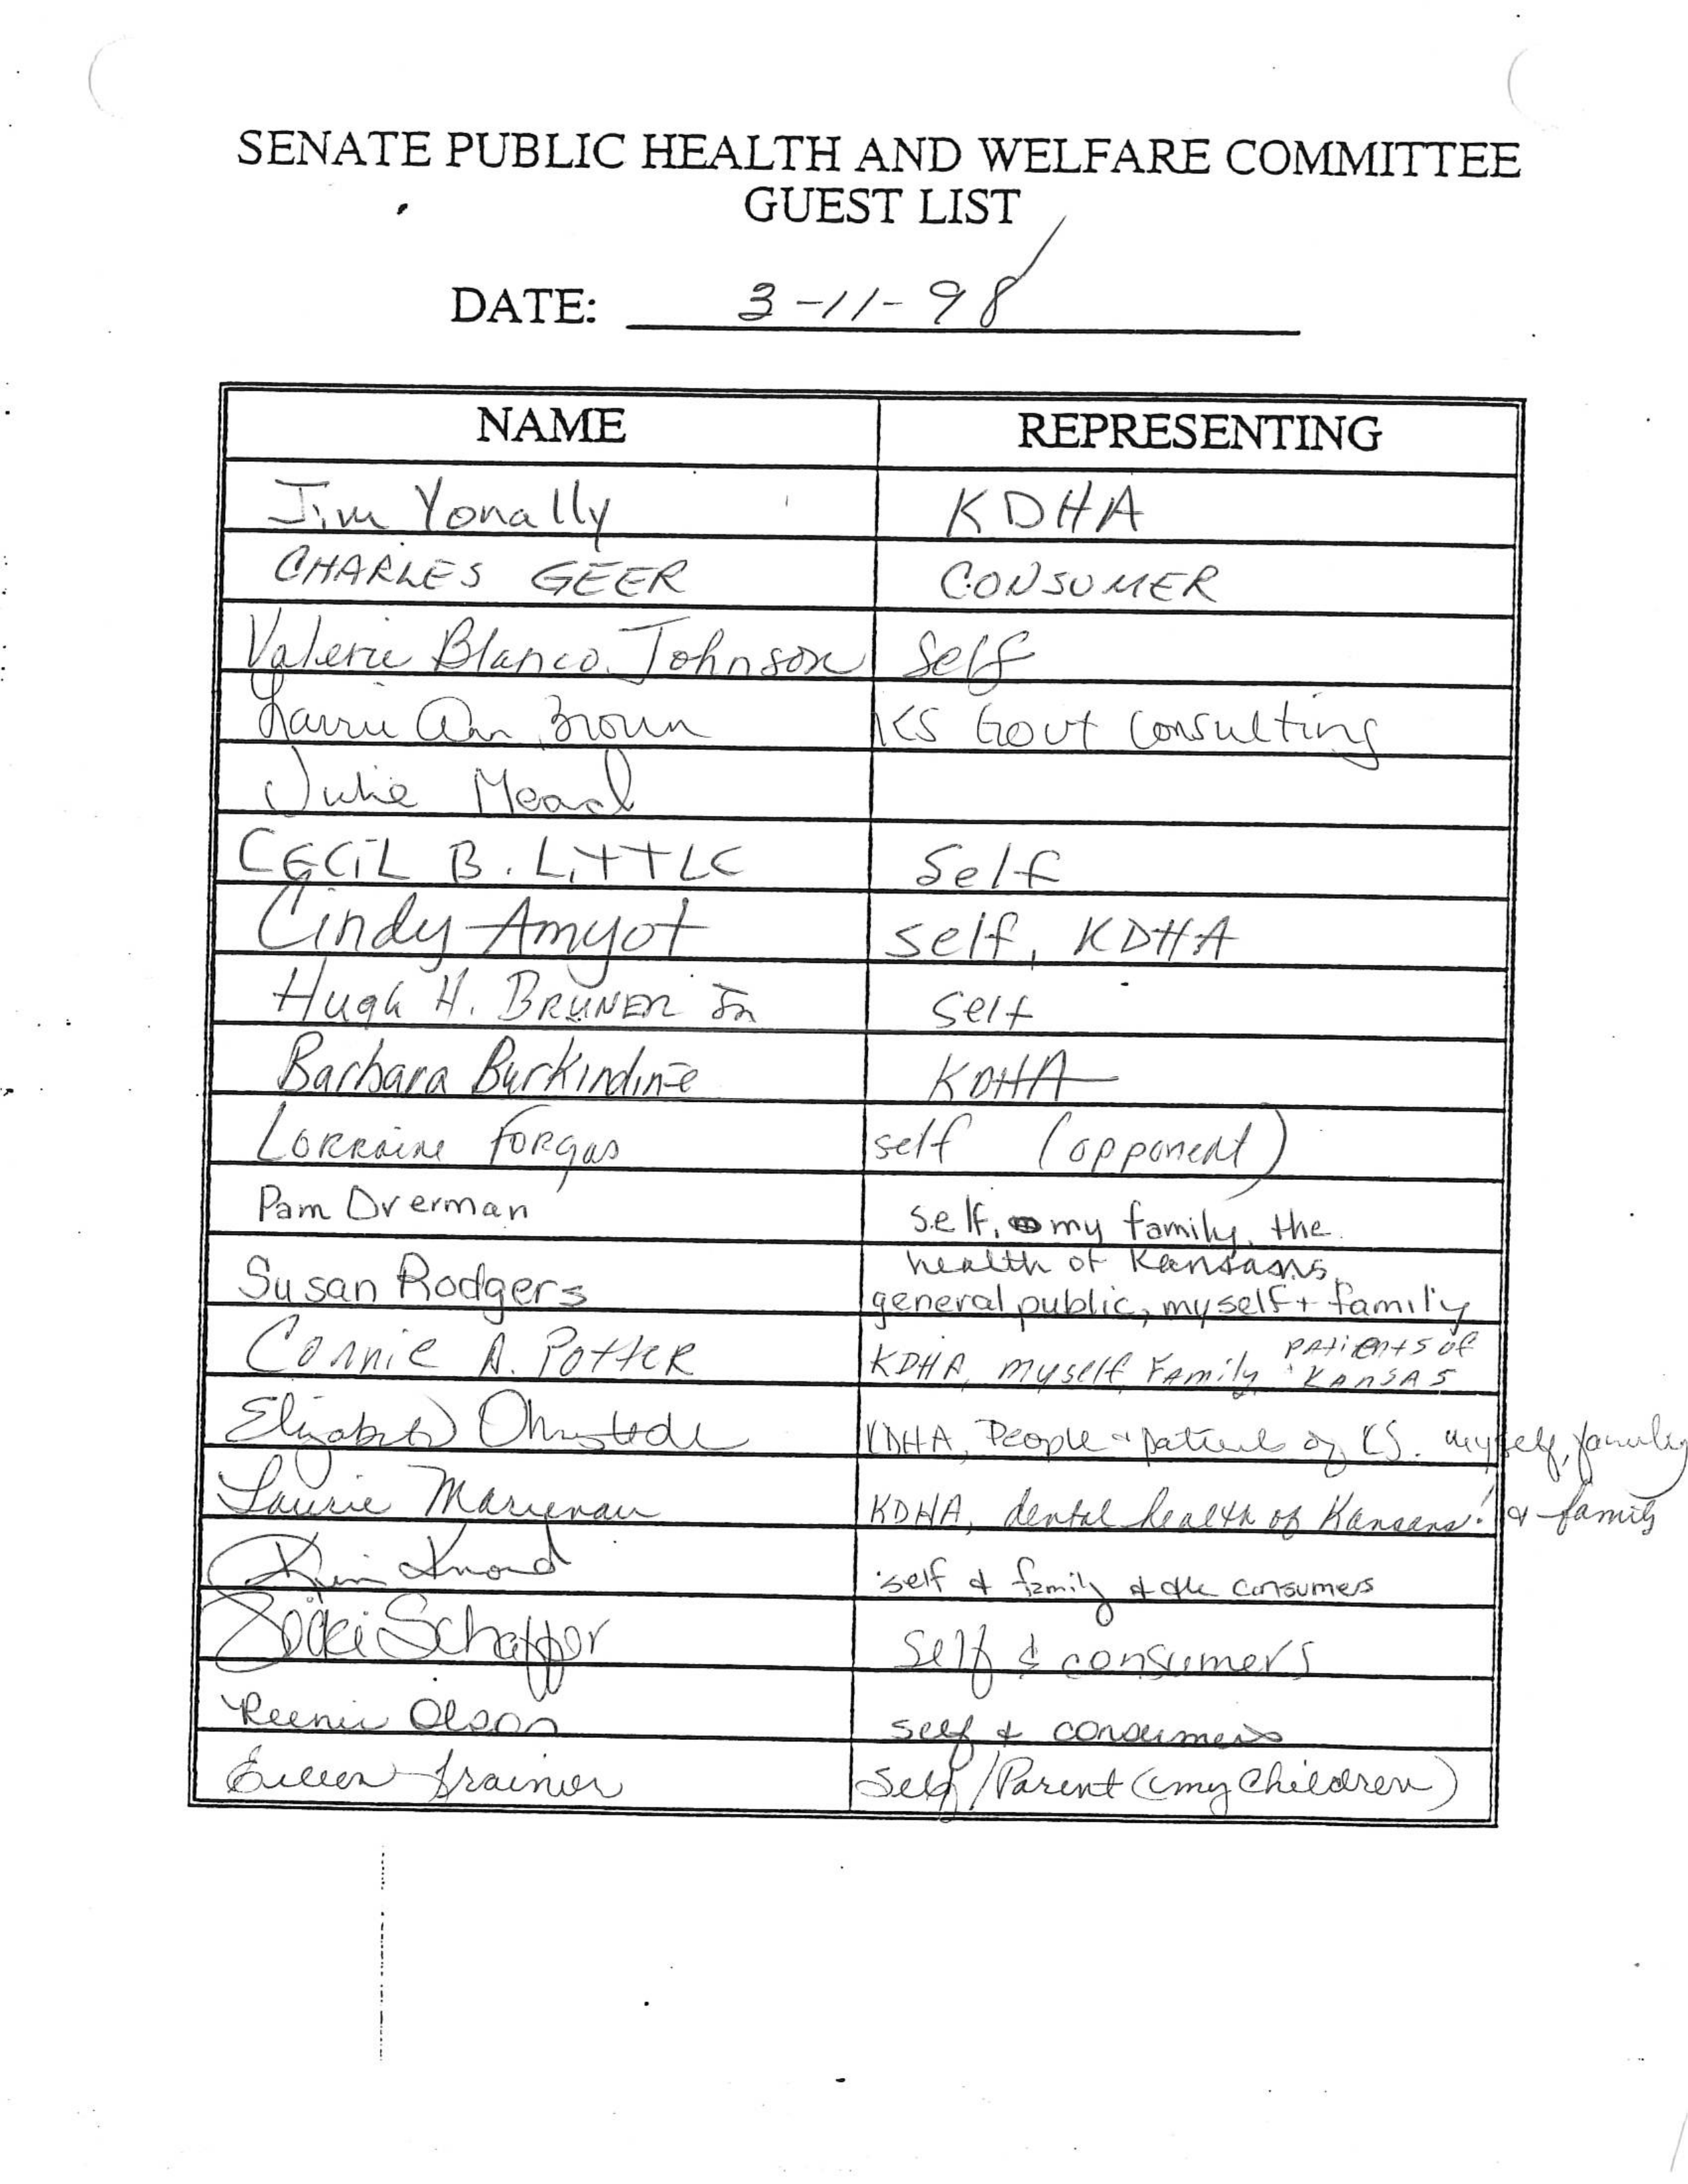 SENATE PUBLIC HEALTH AND WELFARE COMMITTEE
GUEST LIST
DATE: 3-11-98
NAME REPRESENTING
Jim Yonally KDHA
CHARLES GEER CONSUMER
Valerie Blanco Johnson Self
Larrie Ann Brown KS Govt Consulting
Julie Mead
CECIL B. LITTLE Self
Cindy Amyot self, KDHA
Hugh H. BRUNER Jr Self
Barbara Burkindine KDHA
LORRAINE FORGAS self (opponent)
Pam Overman self, my family, the
health of Kansans
Susan Rodgers general public, myself + family
Connie A. Potter KDHA, myself, Family, patients of
KANSAS
Elizabeth KDHA, People + patients of KS. myself, family
Laurie Marienau KDHA, dental health of Kansans! & family
Kim self & family & consumers
Schaffer Self & consumers
Reenie Olson self & consumers
Eileen Trainor Self/Parent (my Children)